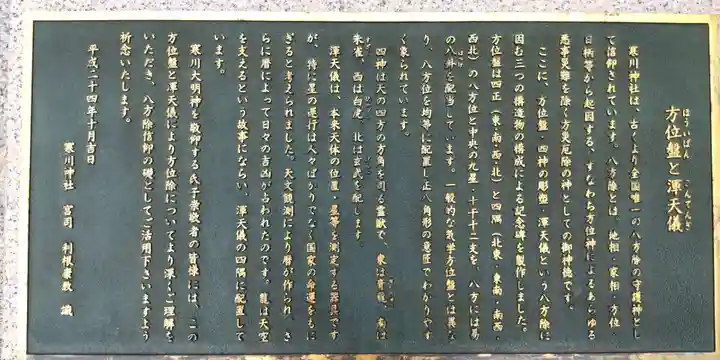 方位盤と渾天儀
ほういばん こんてんぎ
寒川神社は、古くより全国唯一の八方除の守護神とし
て信仰されています。八方除とは、地相・家相・方位
日柄等から起因する、すなわち方位神によるあらゆる
悪事災難を除く方災厄除の神としての御神徳です。
ここに、方位盤・四神の彫塑・渾天儀という八方除に
因む三つの構造物の構成による記念碑を製作しました。
方位盤は四正（東・南・西・北）と四隅（北東・東南・南西・
西北）の八方位と中央の九星・十干十二支を、八方には易
の八卦を配当しています。一般的な気学方位盤とは異な
り、八方位を均等に配置し正八角形の意匠でわかりやす
く象られています。
四神は天の四方の方角を司る霊獣で、東は青龍、南は
朱雀、西は白虎、北は玄武を配します。
渾天儀は、本来天体の位置・星等を測定する器具です
が、特に星の運行は人々ばかりでなく国家の命運をもに
ぎると考えられました。天文観測により暦が作られ、さ
らに暦によって日々の吉凶が占われたのです。龍は天空
を支えるという故事にならい、渾天儀の四隅に配置して
います。
寒川大明神を敬仰する氏子崇敬者の皆様には、この
方位盤と渾天儀により方位除についてより深くご理解を
いただき、八方除信仰の礎としてご活用下さいますよう
祈念いたします。
平成二十四年十月吉日
寒川神社 宮司 利根康教 識